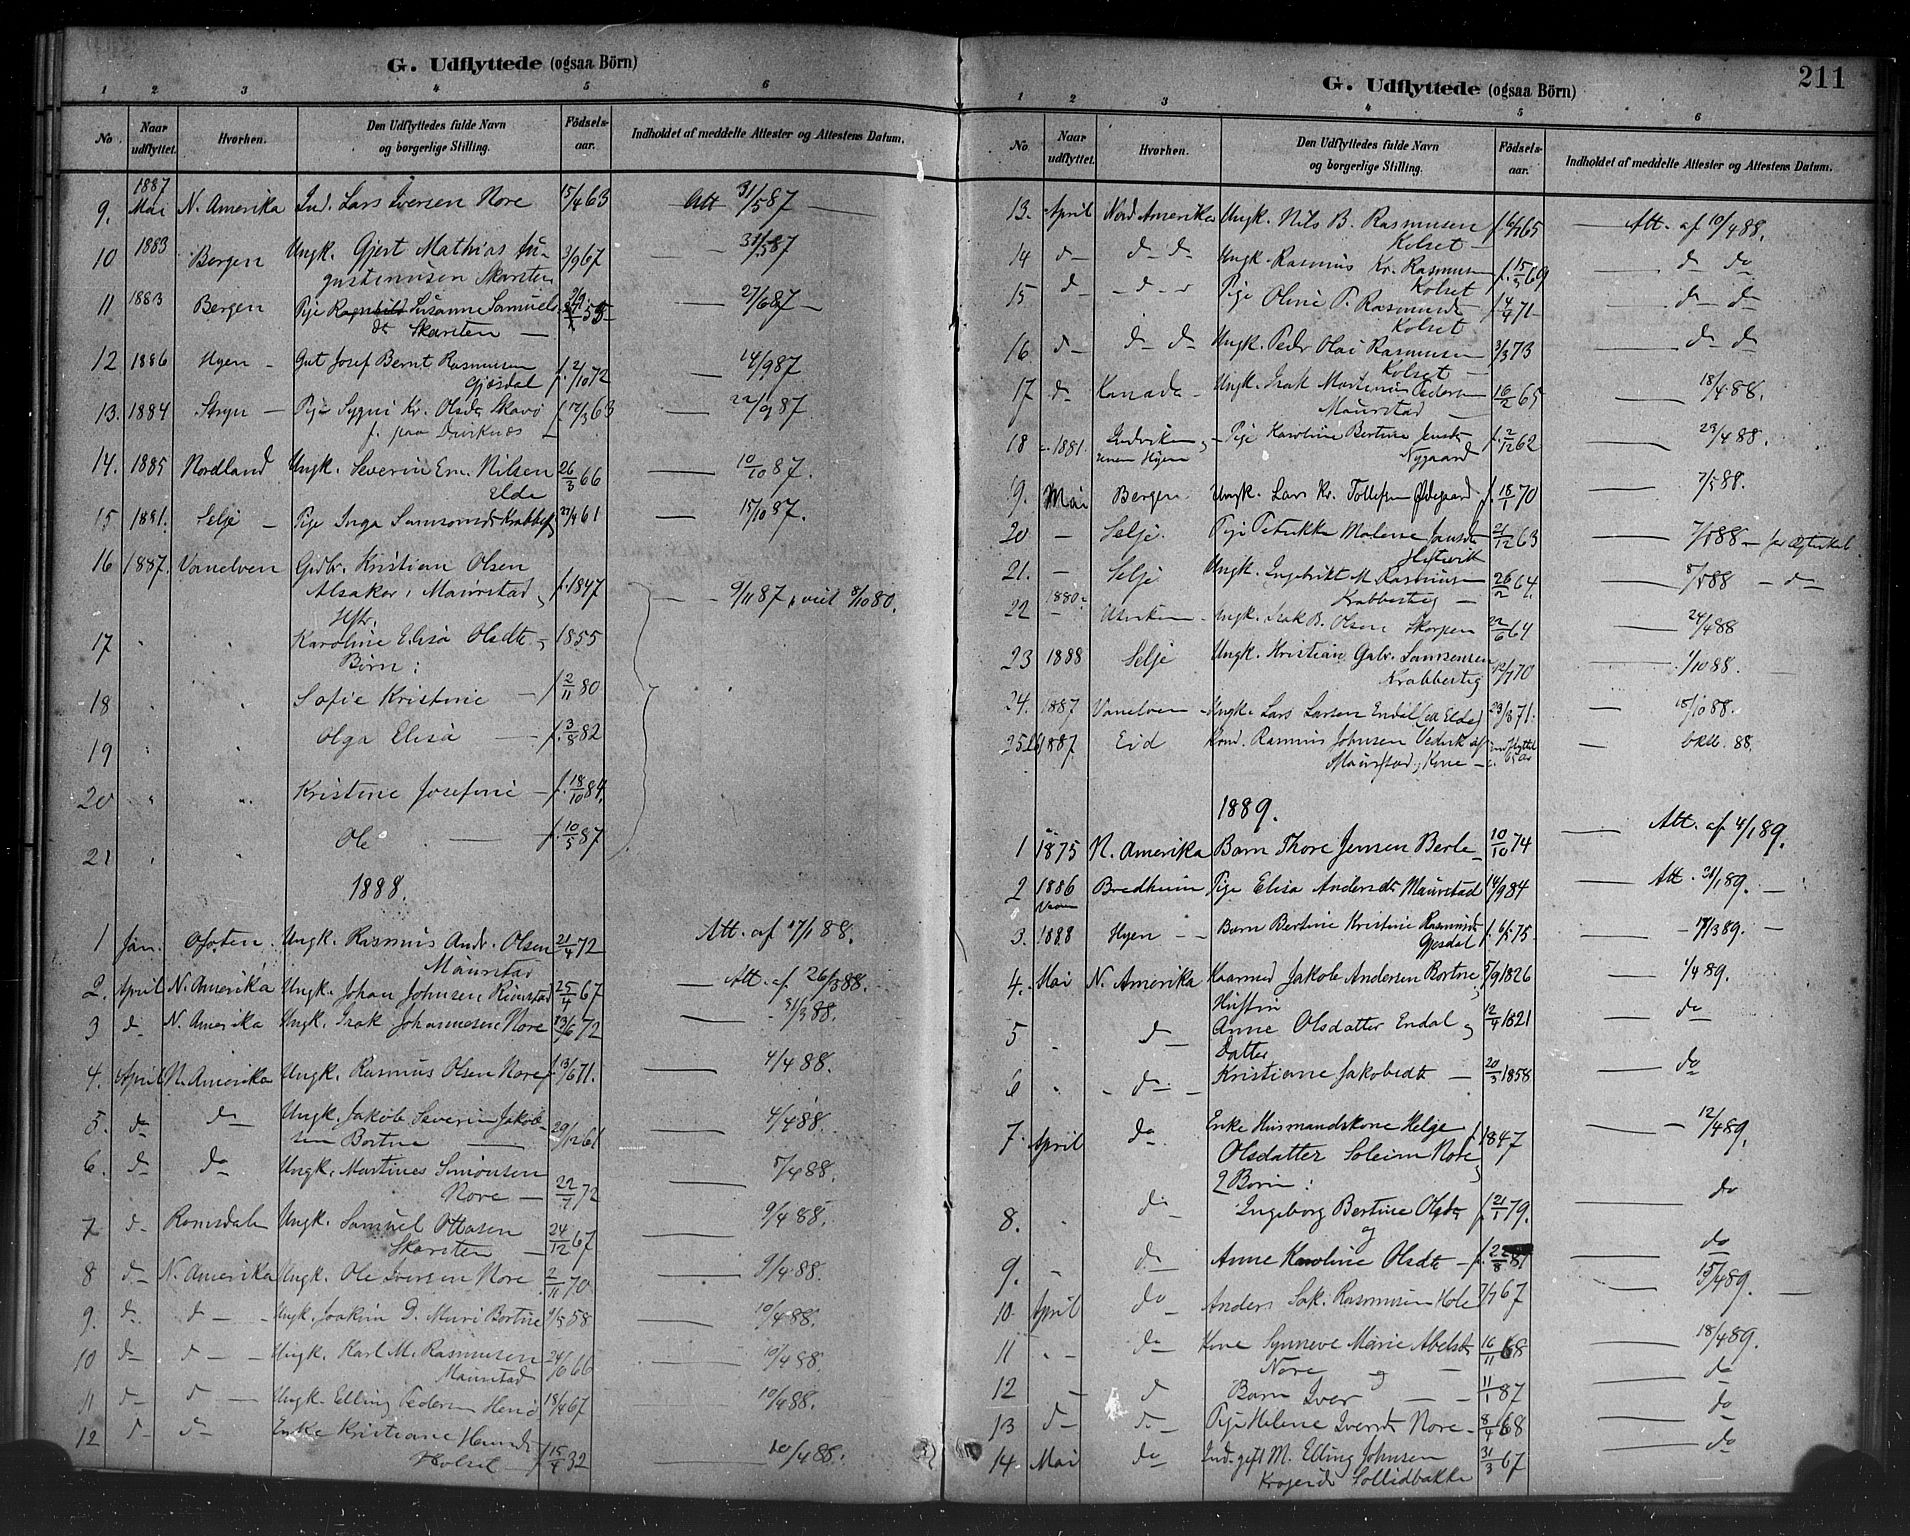 G. Udflyttede (ogsaa Börn)
1 2 3 4 5 6
No Naar udflyttet. Hvorhen. Den Udflyttedes fulde Navn og borgerlige Stilling. Födsels-aar. Indholdet af meddelte Attester og Attestens Datum.
1887
9. Mai N. Amerika Ind. Lars Iversen Nore 15/4 63 Att 31/5 87
10 1883 Bergen Ungk. Gjert Mathias Au-
gustinusen Skarsten 3/9 67 31/5 87
11 1883 Bergen Pige Ragnhild Susanne Samuels-
dt Skarsten 55 27/6 87
12 1886 Hyen Gut Josef Bernt Rasmusen
Gjøsdal f. 2/10 72 14/9 87
13. 1884 Stryn Pige Sygni Kr. Olsdr Skavø
f. paa 63 22/9 87.
14. 1885 Nordland Ungk. Severin Em. Nilsen
Elde 26/3 66 10/10 87.
15 1881. Selje Pige Inga Samsonsdr Krabbest 27/4 61 15/10 87.
16 1887. Vanelven Grdbr. Kristian Olsen
Alsaker, Maurstad, f. 1847 9/11 87, 8/10 80.
Hstr.
17 Karoline Elisa Olsdtr 1855
Børn:
18 Sofie Kristine f. 2/11 80
19 Olga Elisa f. 3/8 82
20 Kristine Josefine f. 18/10 84.
21 Ole f. 10/5 87
1888.
1 Jan. Ofoten. Ungk. Rasmus Andr. Olsen
Maurstad 21/4 72 Att. af 17/1 88.
2. April N. Amerika Ungk. Johan Johnsen Rimstad 25/4 67 Att. af 26/3 88.
3 do N. Amerika Ungk. Isak Johannesen Nore 13/6 72 31/3 88.
4. April N. Amerika Ungk. Rasmus Olsen Nore f. 13/6 71. 4/4 88.
5. do do Ungk. Jakob Severin Jakob-
sen Bortne 29/12 61 4/4 88.
6. do do Ungk. Martines Simonsen
Nore 22/7 72 5/4 88.
7 do Romsdalen Ungk. Samuel Ottosen
Skarsten 24/12 67 9/4 88.
8 do N. Amerika Ungk. Ole Iversen Nore 2/11 70 9/4 88.
9. do do Ungk. Joakim D. Muri Bortne 1/5 58 10/4 88.
10 do do Ungk. Karl M. Rasmusen
Maurstad 24/10 66 10/4 88.
11 do do Ungk. Elling Pedersen Henø 18/4 67 10/4 88.
12 do do Enke Kristiane
f. 15/4 32 10/4 88.
G. Udflyttede (ogsaa Börn) 211
1 2 3 4 5 6
No Naar udflyttet. Hvorhen. Den Udflyttedes fulde Navn og borgerlige Stilling. Födsels-aar. Indholdet af meddelte Attester og Attestens Datum.
13. April Nord Amerika Ungk. Nils B. Rasmusen
Kolset 65 Att. af 10/4 88.
14 do do do Ungk Rasmus Kr. Rasmusen
Kolset f. 15/5 69 do do
15 do do Pige Oline P. Rasmusdr
Kolset 14/4 71 do do
16 do do do Ungk. Peder Olai Rasmusen
Kolset 3/3 73 do do
17 do Kanada Ungk. Isak Martinus Pedersen
Maurstad 16/2 65 18/4 88.
18 1881. Indviken, senere Hyen Pige Karoline Bertine Jensdr
Nygaard f. 2/12 62 23/4 88.
19. Mai Bergen Ungk. Lars Kr. Tollefsen Ødegaard f. 18/1 70 7/5 88.
20 Selje. Pige Petrikke Malene Jansdr
21/12 63 7/5 88
21. Selje Ungk. Ingebrikt M. Rasmusen
Krabbestig 26/2 64. 8/5 88 do
22 1880 Utviken Ungk. Isak B. Olsen Skorpen 22/6 64 24/4 88
23 1888 Selje Ungk. Kristian Gabr. Samsonsen
Krabbestig 12/7 70 1/10 88.
24. 1887 Vanelven Ungk. Lars Larsen Endal (ell Elde) 23/3 71. 15/10 88.
25 26 1887. Eid Kond. Rasmus Johnsen Vederk af
Maurstad, Kone Oktb. 88.
1889.
1 1875 N. Amerika Barn Thore Jensen Berle 10/10 74 Att. af 4/1 89.
2 1886 Bredheim Pige Elisa Andersdr Maurstad 14/9 84 Att. 28/1 89.
3. 1888 Hyen Barn Bertine Kristine Rasmusdr
Gjøsdal f. 6/5 75. 19/3 89.
4. Mai N. Amerika Kaarmd Jakob Andersen Bortne, 5/9 1826 1/4 89.
Hustru
5 do Anne Olsdatter Endal og 12/4 1821 do
Datter
6 do Kristiane Jakobsdt 20/3 1858 do
7 April do Enke Husmandskone Helge
Olsdatter Soleim Nore f. 1847 12/4 89.
2 Børn:
8. do Ingeborg Bertine Olsdr f. 21/1 79. do
og
9. do Anne Karoline Olsdt f. 22/8 81 do
10 April do Anders Sak. Rasmusen Hole 7/7 67 15/4 89.
11 do Kone Synneve Marie Abelsdr
Nore og 16/11 68 18/4 89.
12 do Barn Iver 11/1 87 do
13 do do Pige Helene Iversdr Nore 8/4 68 do
14 Mai do Ind. gift M. Elling Johnsen
Sollidbakke 31/3 67 do